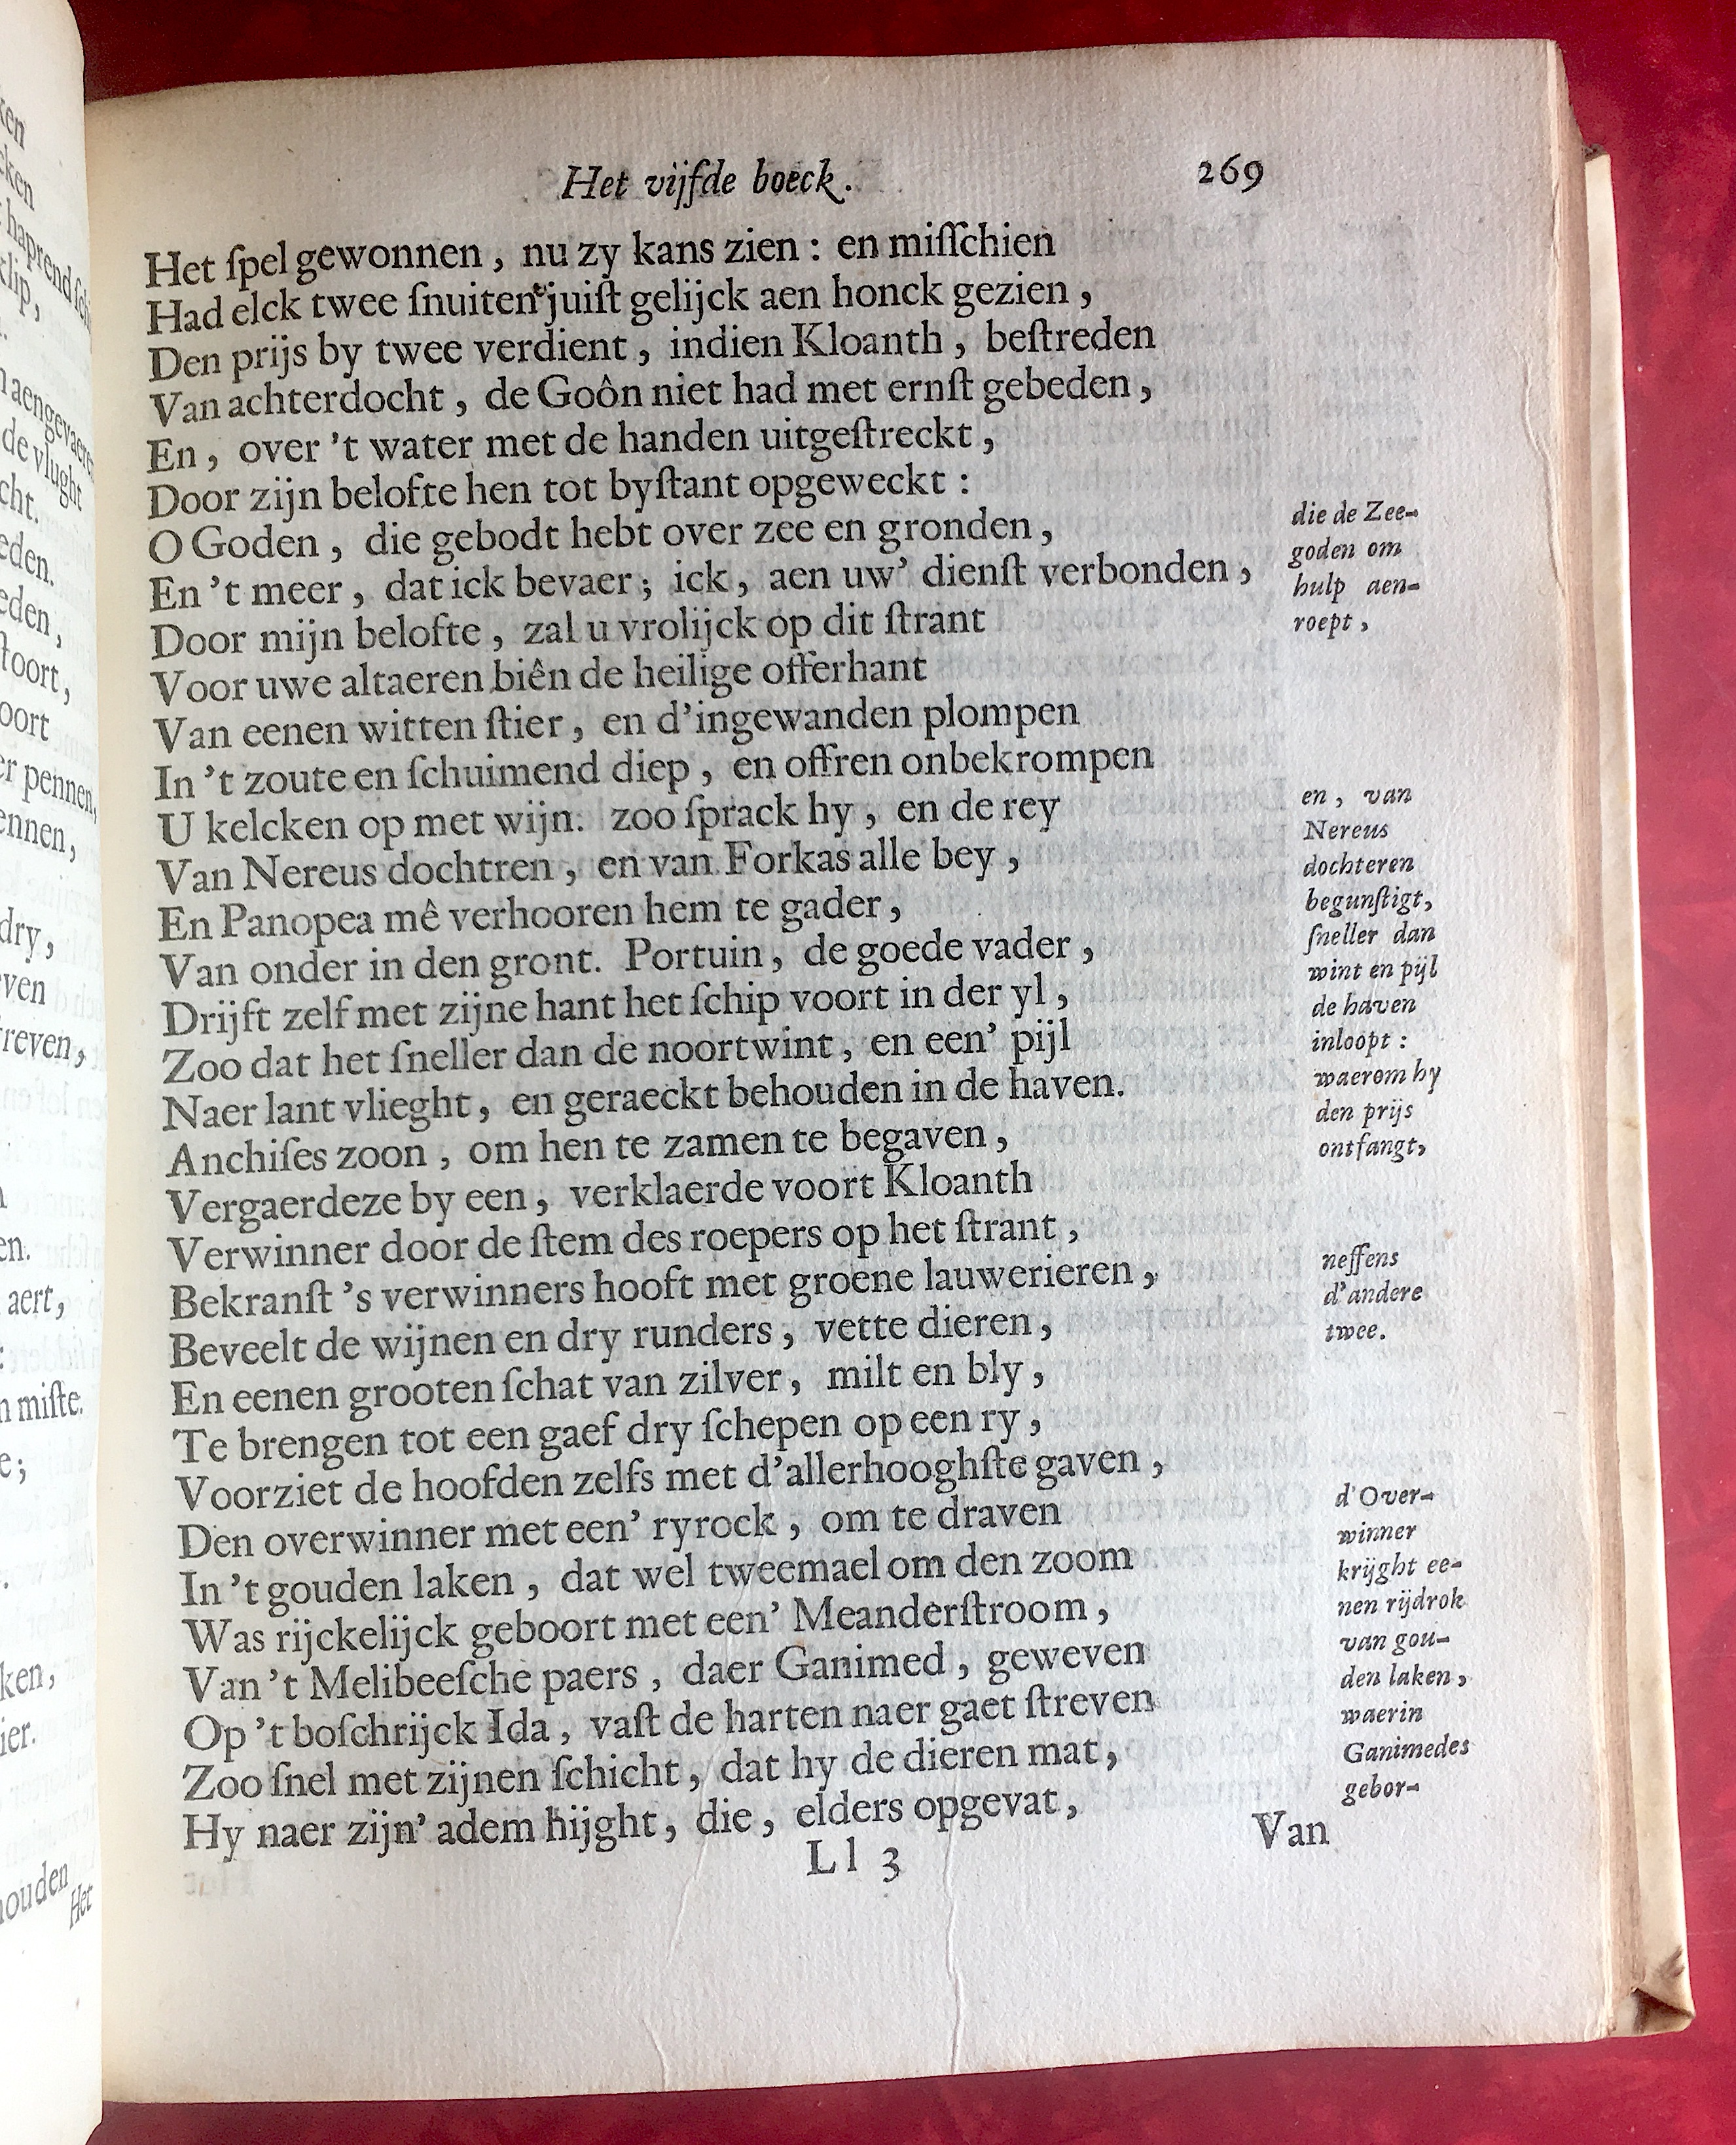 Het vijfde boeck.
269
Het ſpel gewonnen, nu zy kans zien: en miſſchien
Had elck twee ſnuiten juiſt gelijck aen honck gezien,
Den prijs by twee verdient, indien Kloanth, beſtreden
Van achterdocht, de Goôn niet had met ernſt gebeden,
En, over 't water met de handen uitgeſtreckt,
Door zijn belofte hen tot byſtant opgeweckt:
O Goden, die gebodt hebt over zee en gronden,
En 't meer, dat ick bevaer; ick, aen uw' dienſt verbonden,
Door mijn belofte, zal u vrolijck op dit ſtrant
Voor uwe altaeren biên de heilige offerhant
Van eenen witten ſtier, en d'ingewanden plompen
In 't zoute en ſchuimend diep, en offren onbekrompen
U kelcken op met wijn. zoo ſprack hy, en de rey
Van Nereus dochtren, en van Forkas alle bey,
En Panopea mê verhooren hem te gader,
Van onder in den gront. Portuin, de goede vader,
Drijft zelf met zijne hant het ſchip voort in der yl,
Zoo dat het ſneller dan de noortwint, en een' pijl
Naer lant vlieght, en geraeckt behouden in de haven.
Anchiſes zoon, om hen te zamen te begaven,
Vergaerdeze by een, verklaerde voort Kloanth
Verwinner door de ſtem des roepers op het ſtrant,
Bekranſt 's verwinners hooft met groene lauwerieren,
Beveelt de wijnen en dry runders, vette dieren,
En eenen grooten ſchat van zilver, milt en bly,
Te brengen tot een gaef dry ſchepen op een ry,
Voorziet de hoofden zelfs met d'allerhooghſte gaven,
Den overwinner met een' ryrock, om te draven
In 't gouden laken, dat wel tweemael om den zoom
Was rijckelijck geboort met een' Meanderſtroom,
Van 't Melibeeſche paers, daer Ganimed, geweven
Op 't boſchrijck Ida, vaſt de harten naer gaet ſtreven
Zoo ſnel met zijnen ſchicht, dat hy de dieren mat,
Hy naer zijn' adem hijght, die, elders opgevat,
Ll 3
Van
die de Zee-
goden om
hulp aen-
roept,
en, van
Nereus
dochteren
begunſtigt,
ſneller dan
wint en pijl
de haven
inloopt:
waerom hy
den prijs
ontfangt,
neffens
d'andere
twee.
d'Over-
winner
krijght ee-
nen rijdrok
van gou-
den laken,
waerin
Ganimedes
gebor-